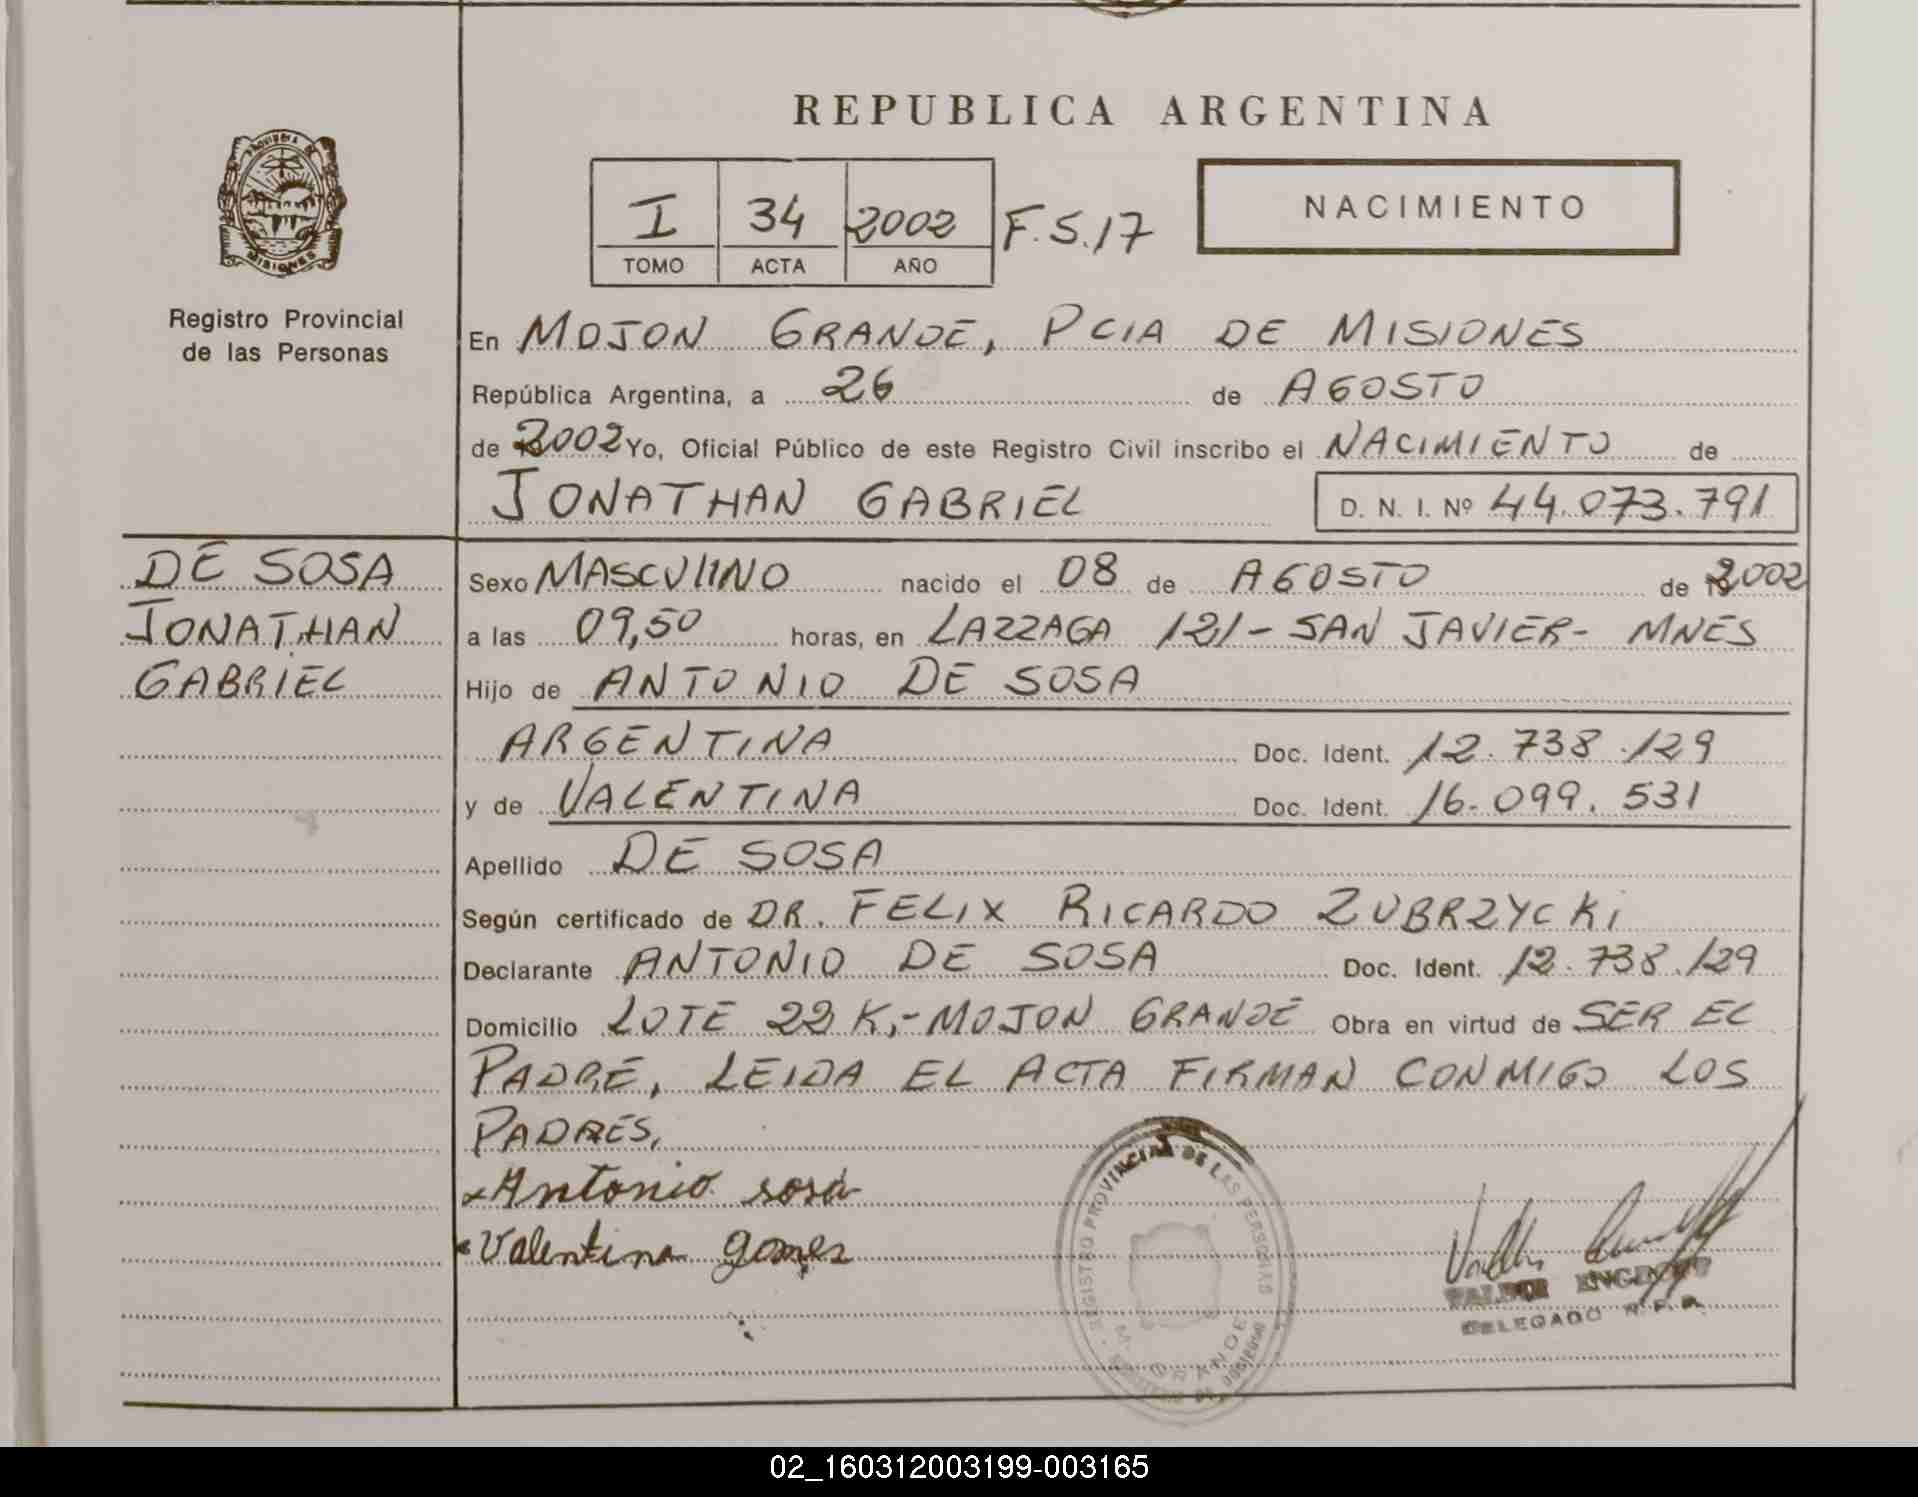 REPUBLICA ARGENTINA
PROVINCIA DE
MISIONES
Registro Provincial
de las Personas
I 34 2002 F.S.17
TOMO ACTA AÑO
NACIMIENTO
En MOJON GRANDE, PCIA DE MISIONES
República Argentina, a 26 de AGOSTO
de 2002 Yo, Oficial Público de este Registro Civil inscribo el NACIMIENTO de
JONATHAN GABRIEL D. N. I. Nº 44.073.791
DE SOSA
JONATHAN
GABRIEL
Sexo MASCULINO nacido el 08 de AGOSTO de 2002
a las 09,50 horas, en LAZZAGA 121 - SAN JAVIER - MNES
Hijo de ANTONIO DE SOSA
ARGENTINA Doc. Ident. 12.738.129
y de VALENTINA Doc. Ident. 16.099.531
Apellido DE SOSA
Según certificado de DR. FELIX RICARDO ZUBRZYCKi
Declarante ANTONIO DE SOSA Doc. Ident. 12.738.129
Domicilio LOTE 22 K,- MOJON GRANDE Obra en virtud de SER EL
PADRE, LEIDA EL ACTA FIRMAN CONMIGO LOS
PADRES,
Antonio sosa
Valentina gomes
REGISTRO PROVINCIAL DE LAS PERSONAS
M. GRANDE
VALDIR
DELEGADO R.P.P.
02_160312003199-003165